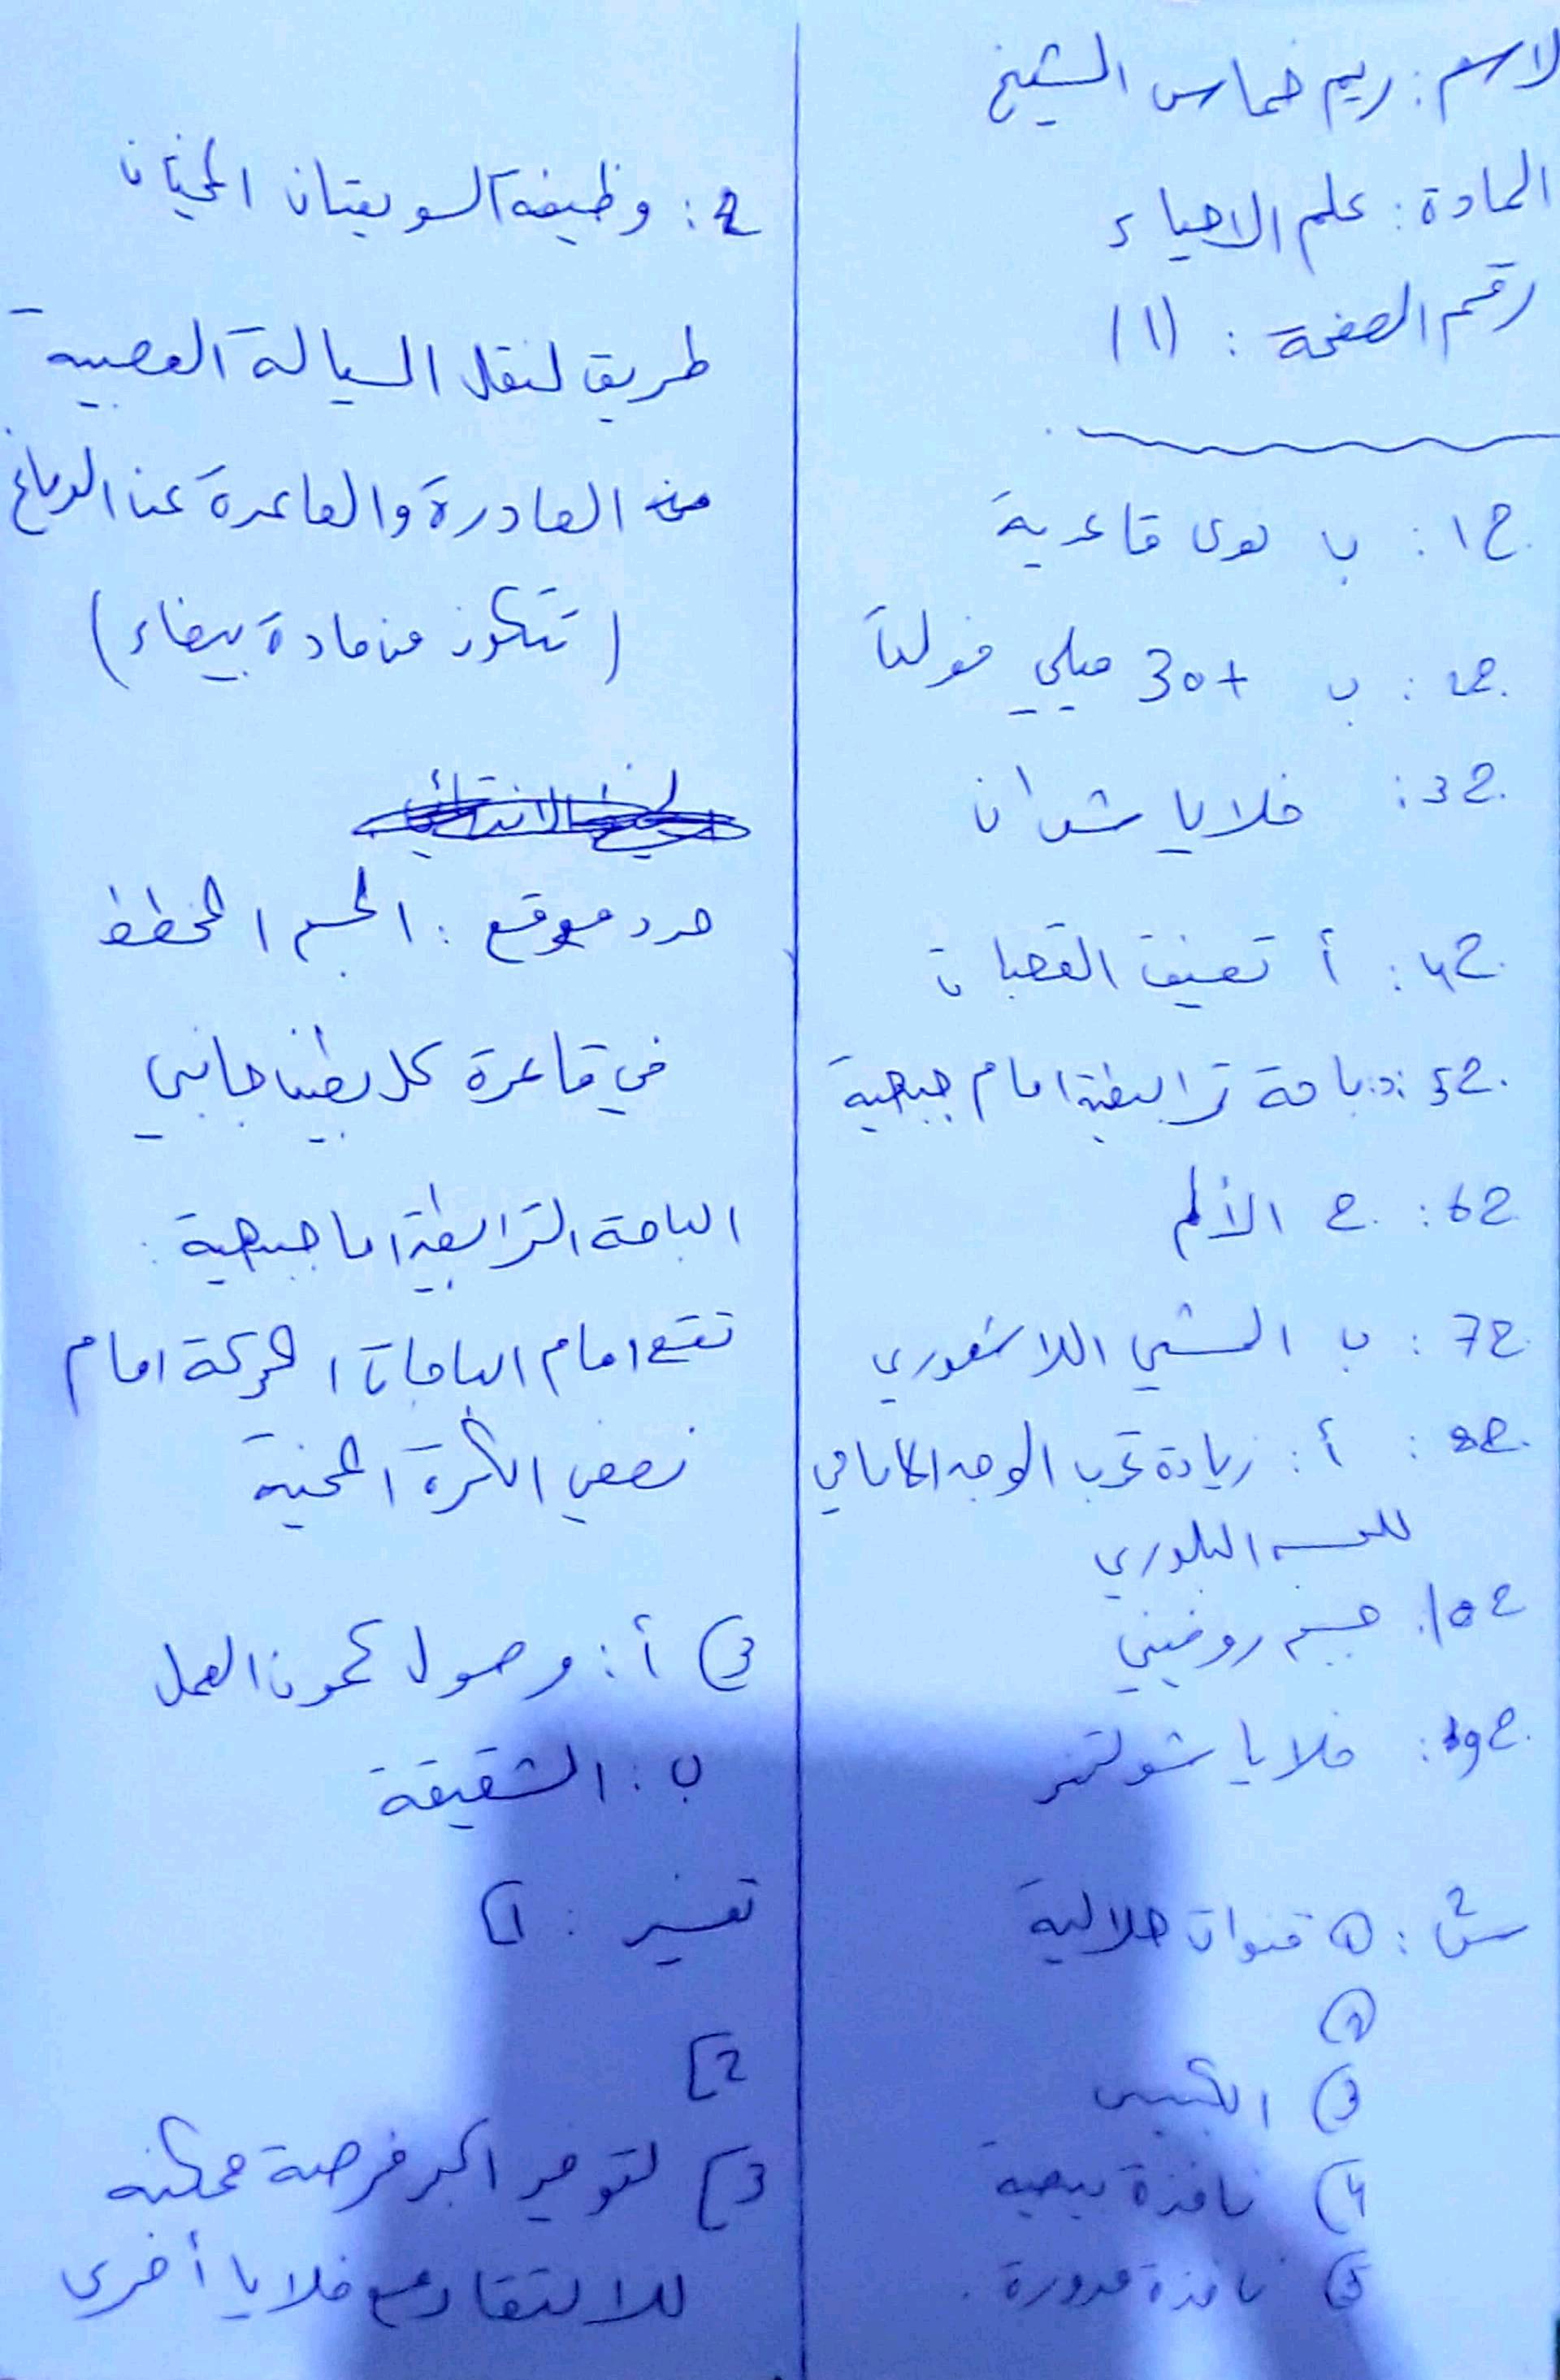 الاسم : ريم خماس الشيخ
المادة : علم الاحياء
رقم الصفحة : (1)
ج1 : ب نوى قاعدية
ج2 : ب +30 ميلي فولت
ج3 : خلايا شوان
ج4 : أ تضيق القصبات
ج5 : د : باحة ترابطية امام جبهية
ج6 : ج الألم
ج7 : ب المشي اللاشعوري
ج8 : أ : زيادة تحدب الوجه الامامي
للجسم البلوري
ج10 : جسم روفيني
ج9 : خلايا شولتز
ج ش : 1 قنوات هلالية
2
3 الكييس
4 نافذة بيضية
5 نافذة مدورة .
2 : وظيفة السويقتان المخيتان
طريق لنقل السيالة العصبية
من الصادرة والصاعدة عن الدماغ
(تتكون من مادة بيضاء)
حدد موقع : الجسم المخطط
في قاعدة كل بطين جانبي
الباحة الترابطية اما جبهية :
تقع امام الباحات الحركة امام
نصفي الكرة المخية
3) أ : وصول كمون العمل
ب : الشقيقة
تفسير : 1)
2)
3) لتوفير اكبر فرصة ممكنه
للالتقاء مع خلايا أخرى